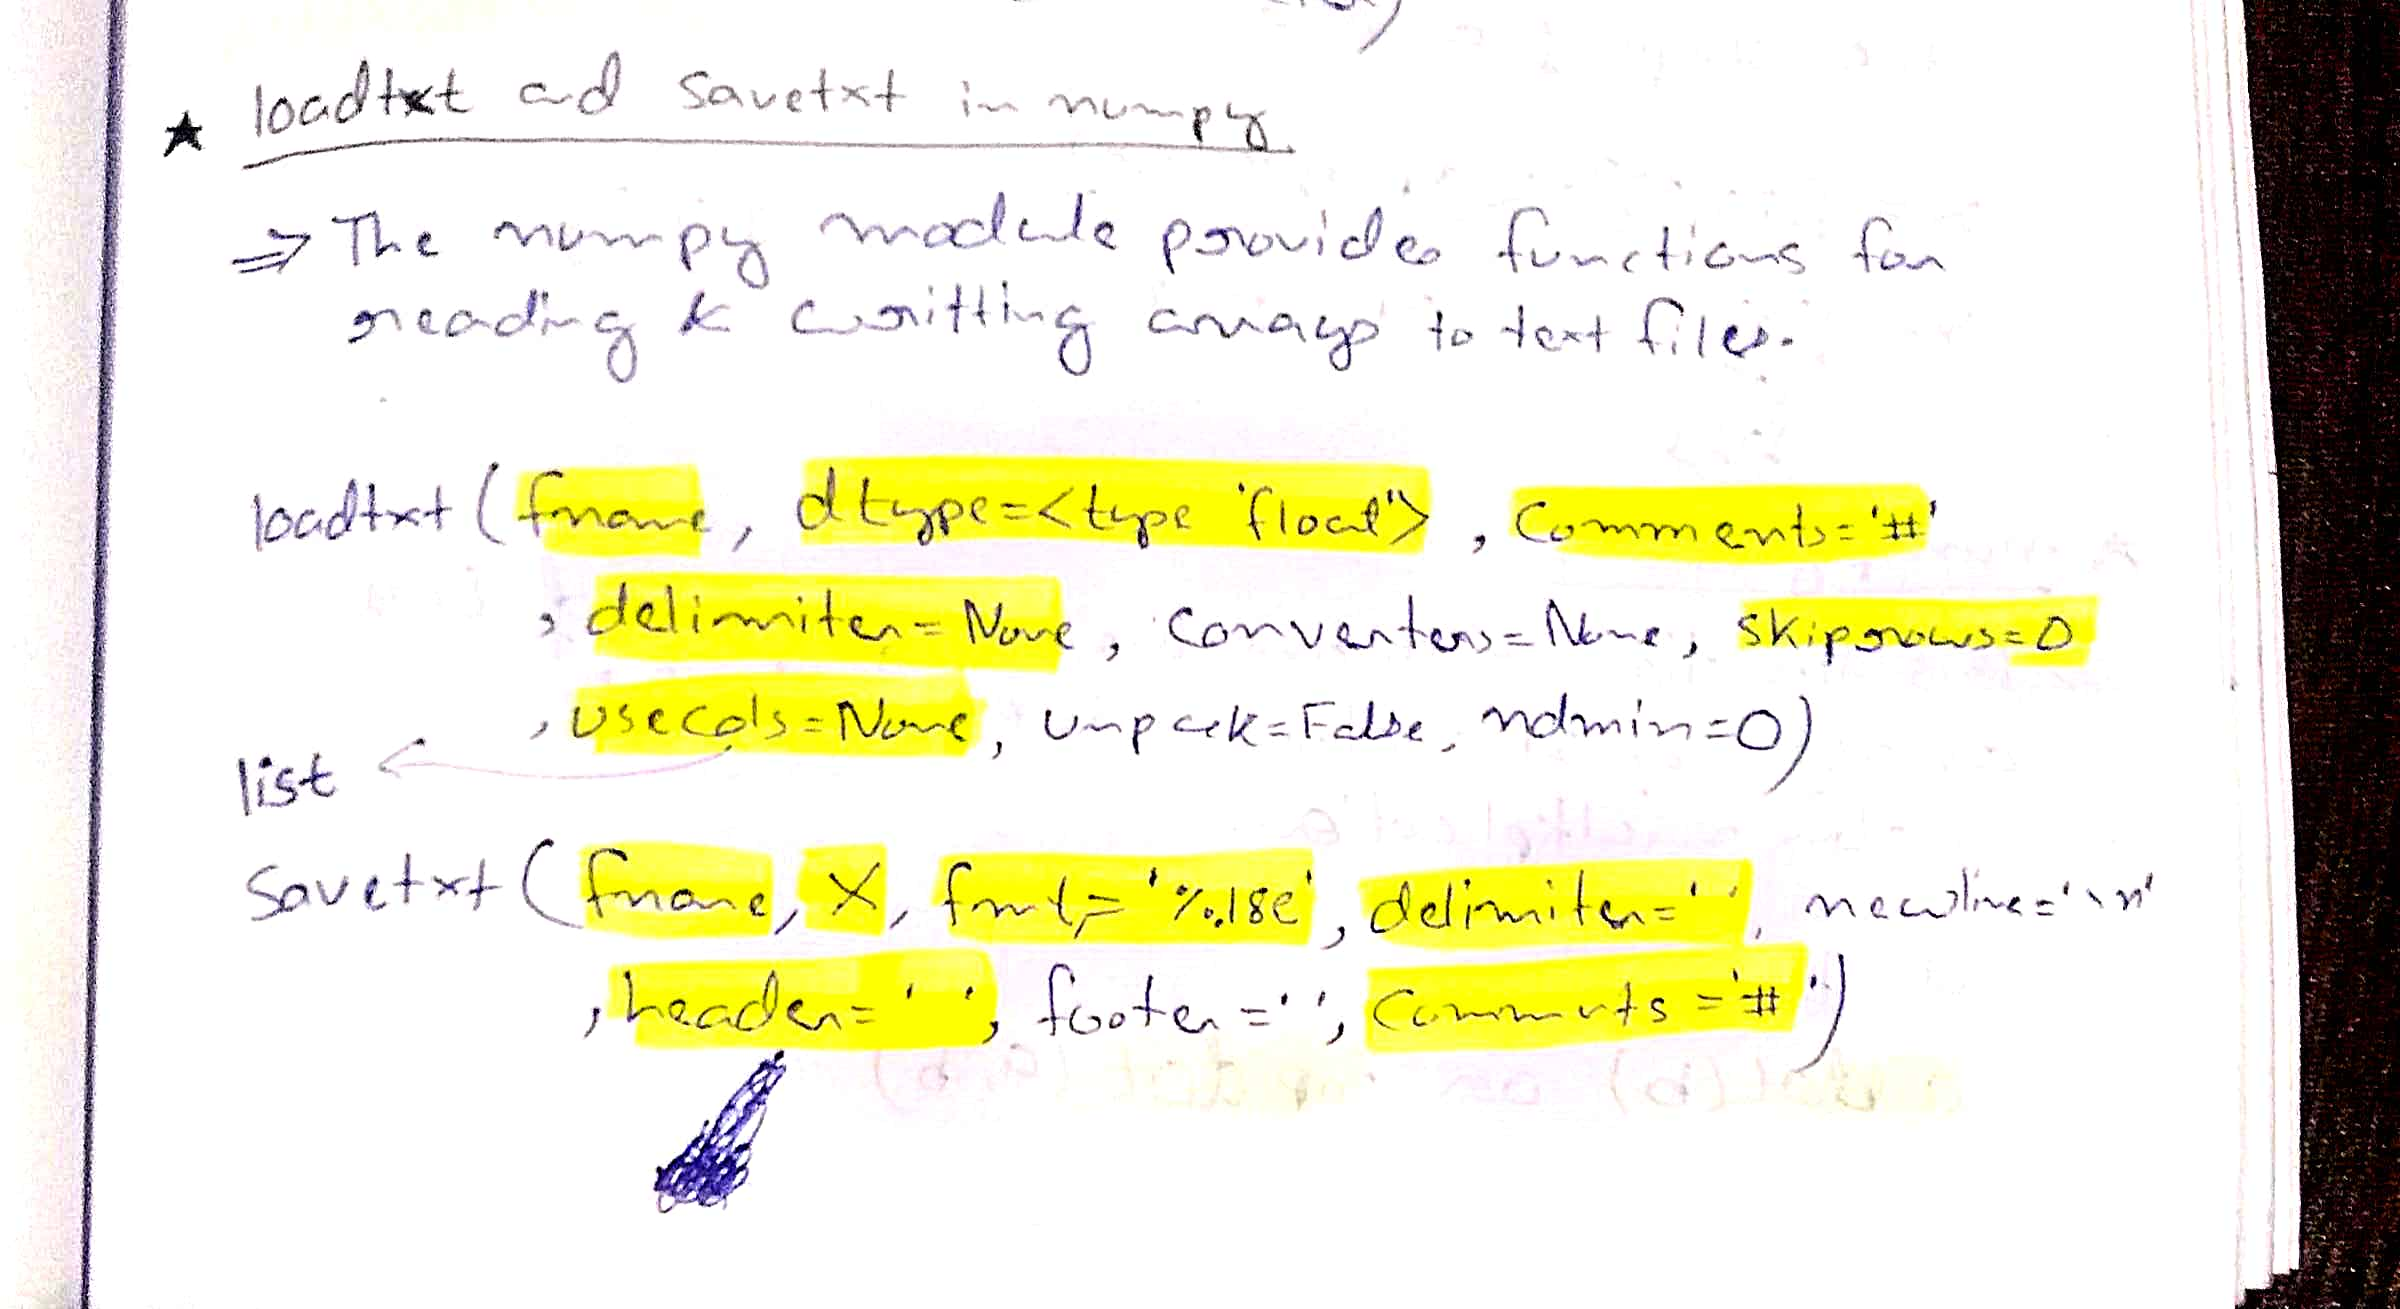 ★ loadtxt and savetxt in numpy.
⇒ The numpy module provides functions for
reading & writting arrays to text files.
loadtxt (fname, dtype=<type 'float'>, comments='#'
, delimiter=None, converters=None, skiprows=0
, usecols=None, unpack=False, ndmin=0)
list ←
savetxt (fname, X, fmt='%.18e', delimiter=' ', newline='\n'
, header=' ', footer=' ', comments='#')